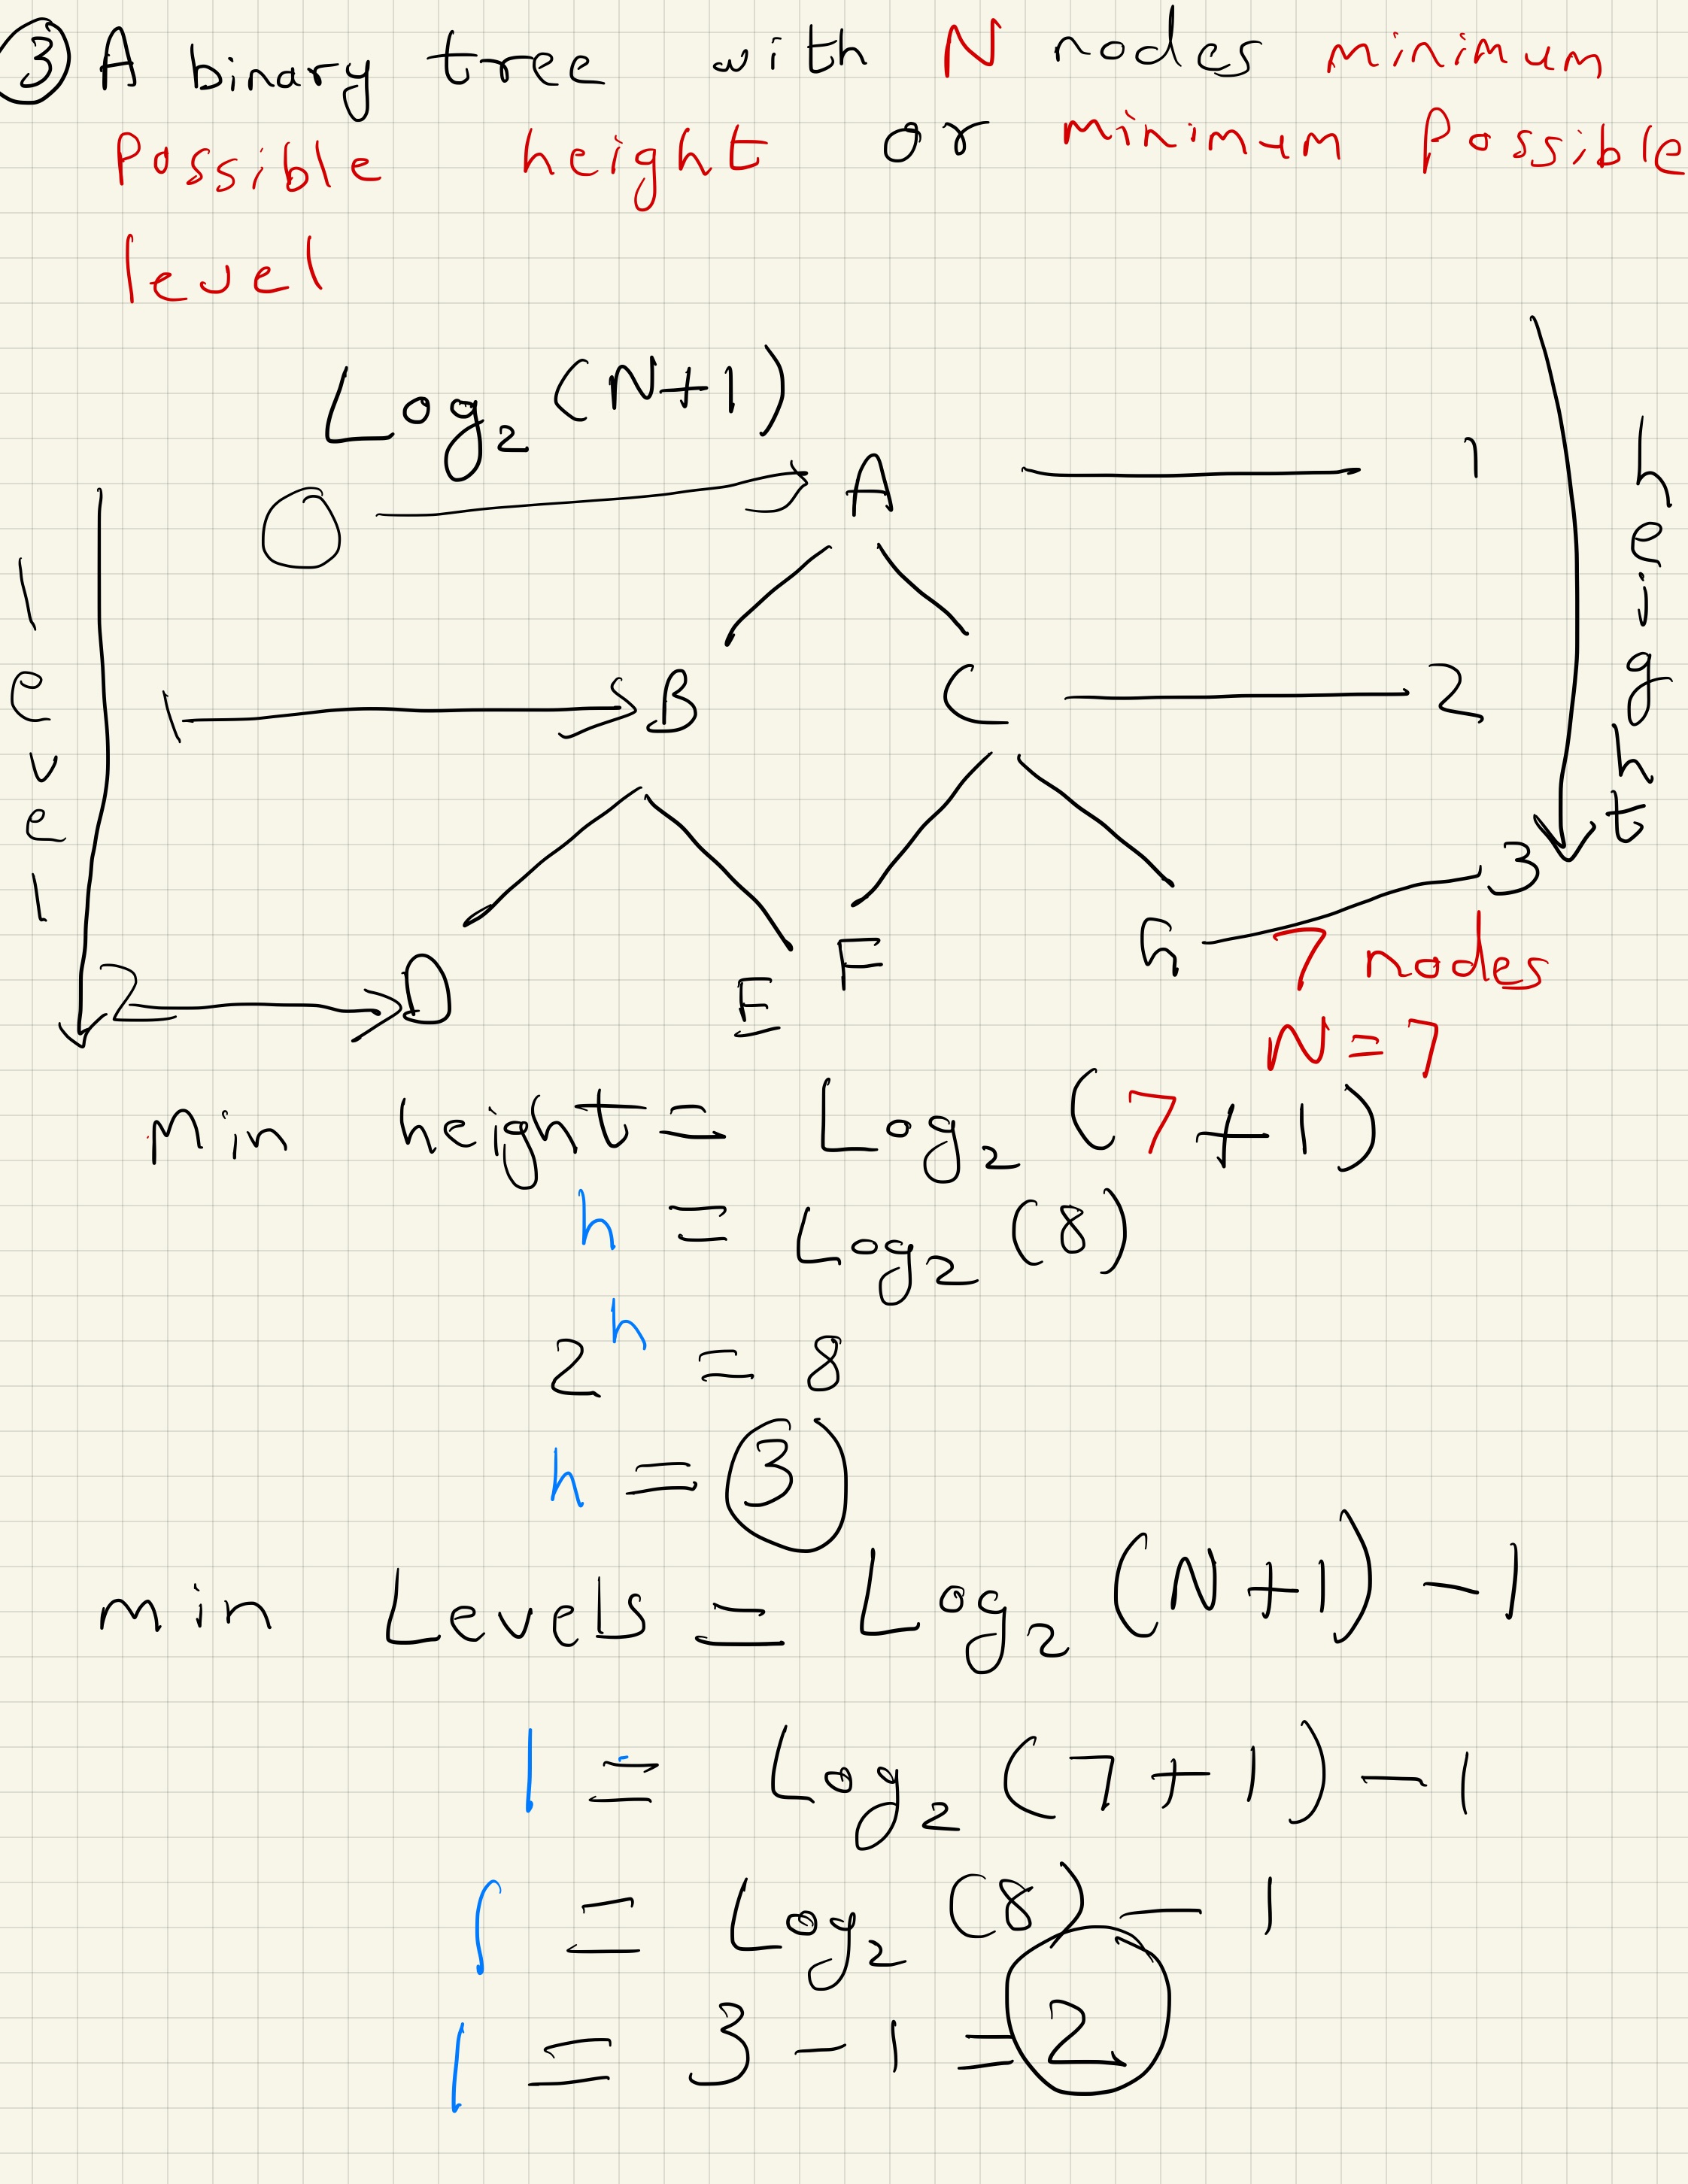 ③ A binary tree with N nodes minimum
Possible height or minimum Possible
level
Log₂ (N+1)
0 A 1
level
height
1 B C 2
3
2 D E F G
7 nodes
N = 7
min height = Log₂ (7+1)
h = Log₂ (8)
2ʰ = 8
h = 3
min Levels = Log₂ (N+1) - 1
l = Log₂ (7+1) - 1
l = Log₂ (8) - 1
l = 3 - 1 = 2